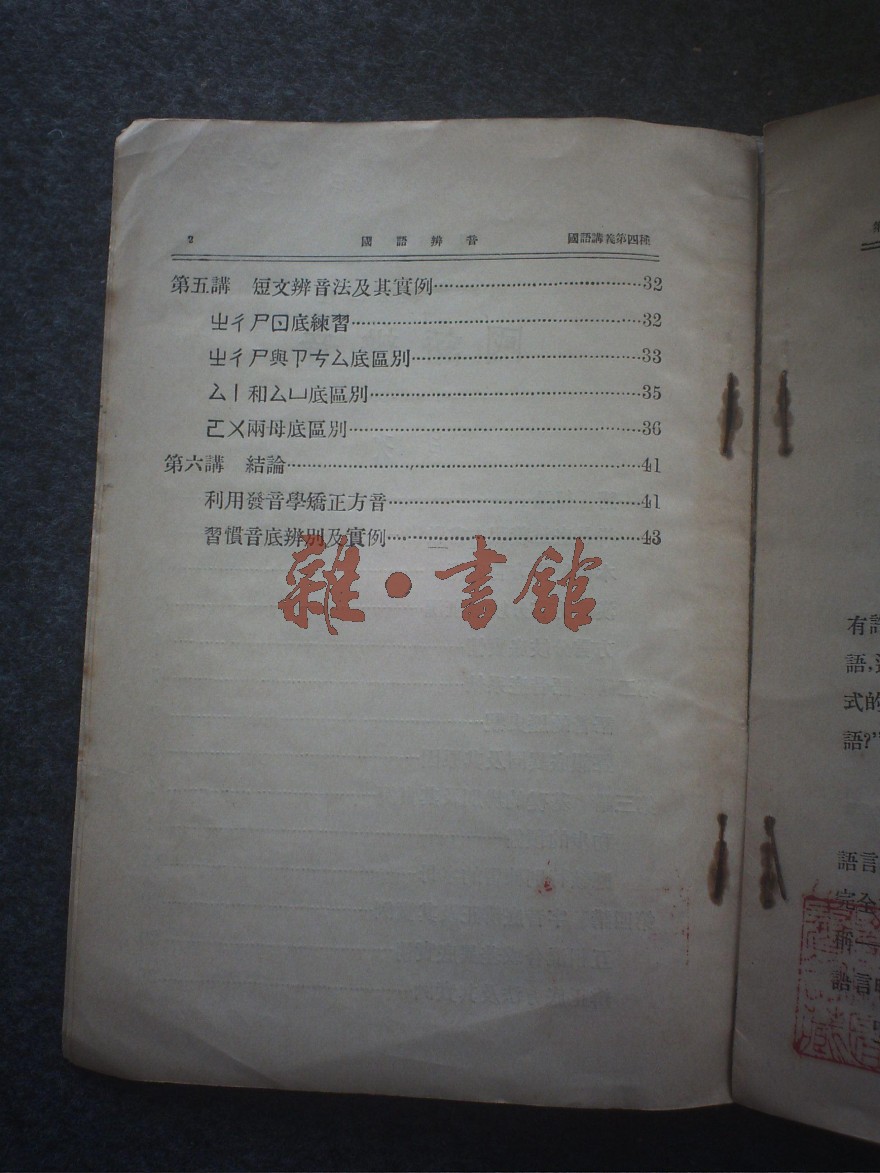 2 國語辨音 國語講義第四種
第五講 短文辨音法及其實例……32
ㄓㄔㄕㄖ底練習……32
ㄓㄔㄕ與ㄗㄘㄙ底區別……33
ㄙㄧ和ㄙㄩ底區別……35
ㄛㄨ兩母底區別……36
第六講 結論……41
利用發音學矯正方音……41
習慣音底辨別及實例……43
雜·書館
語,
式的
語?"
語言
完全
語言